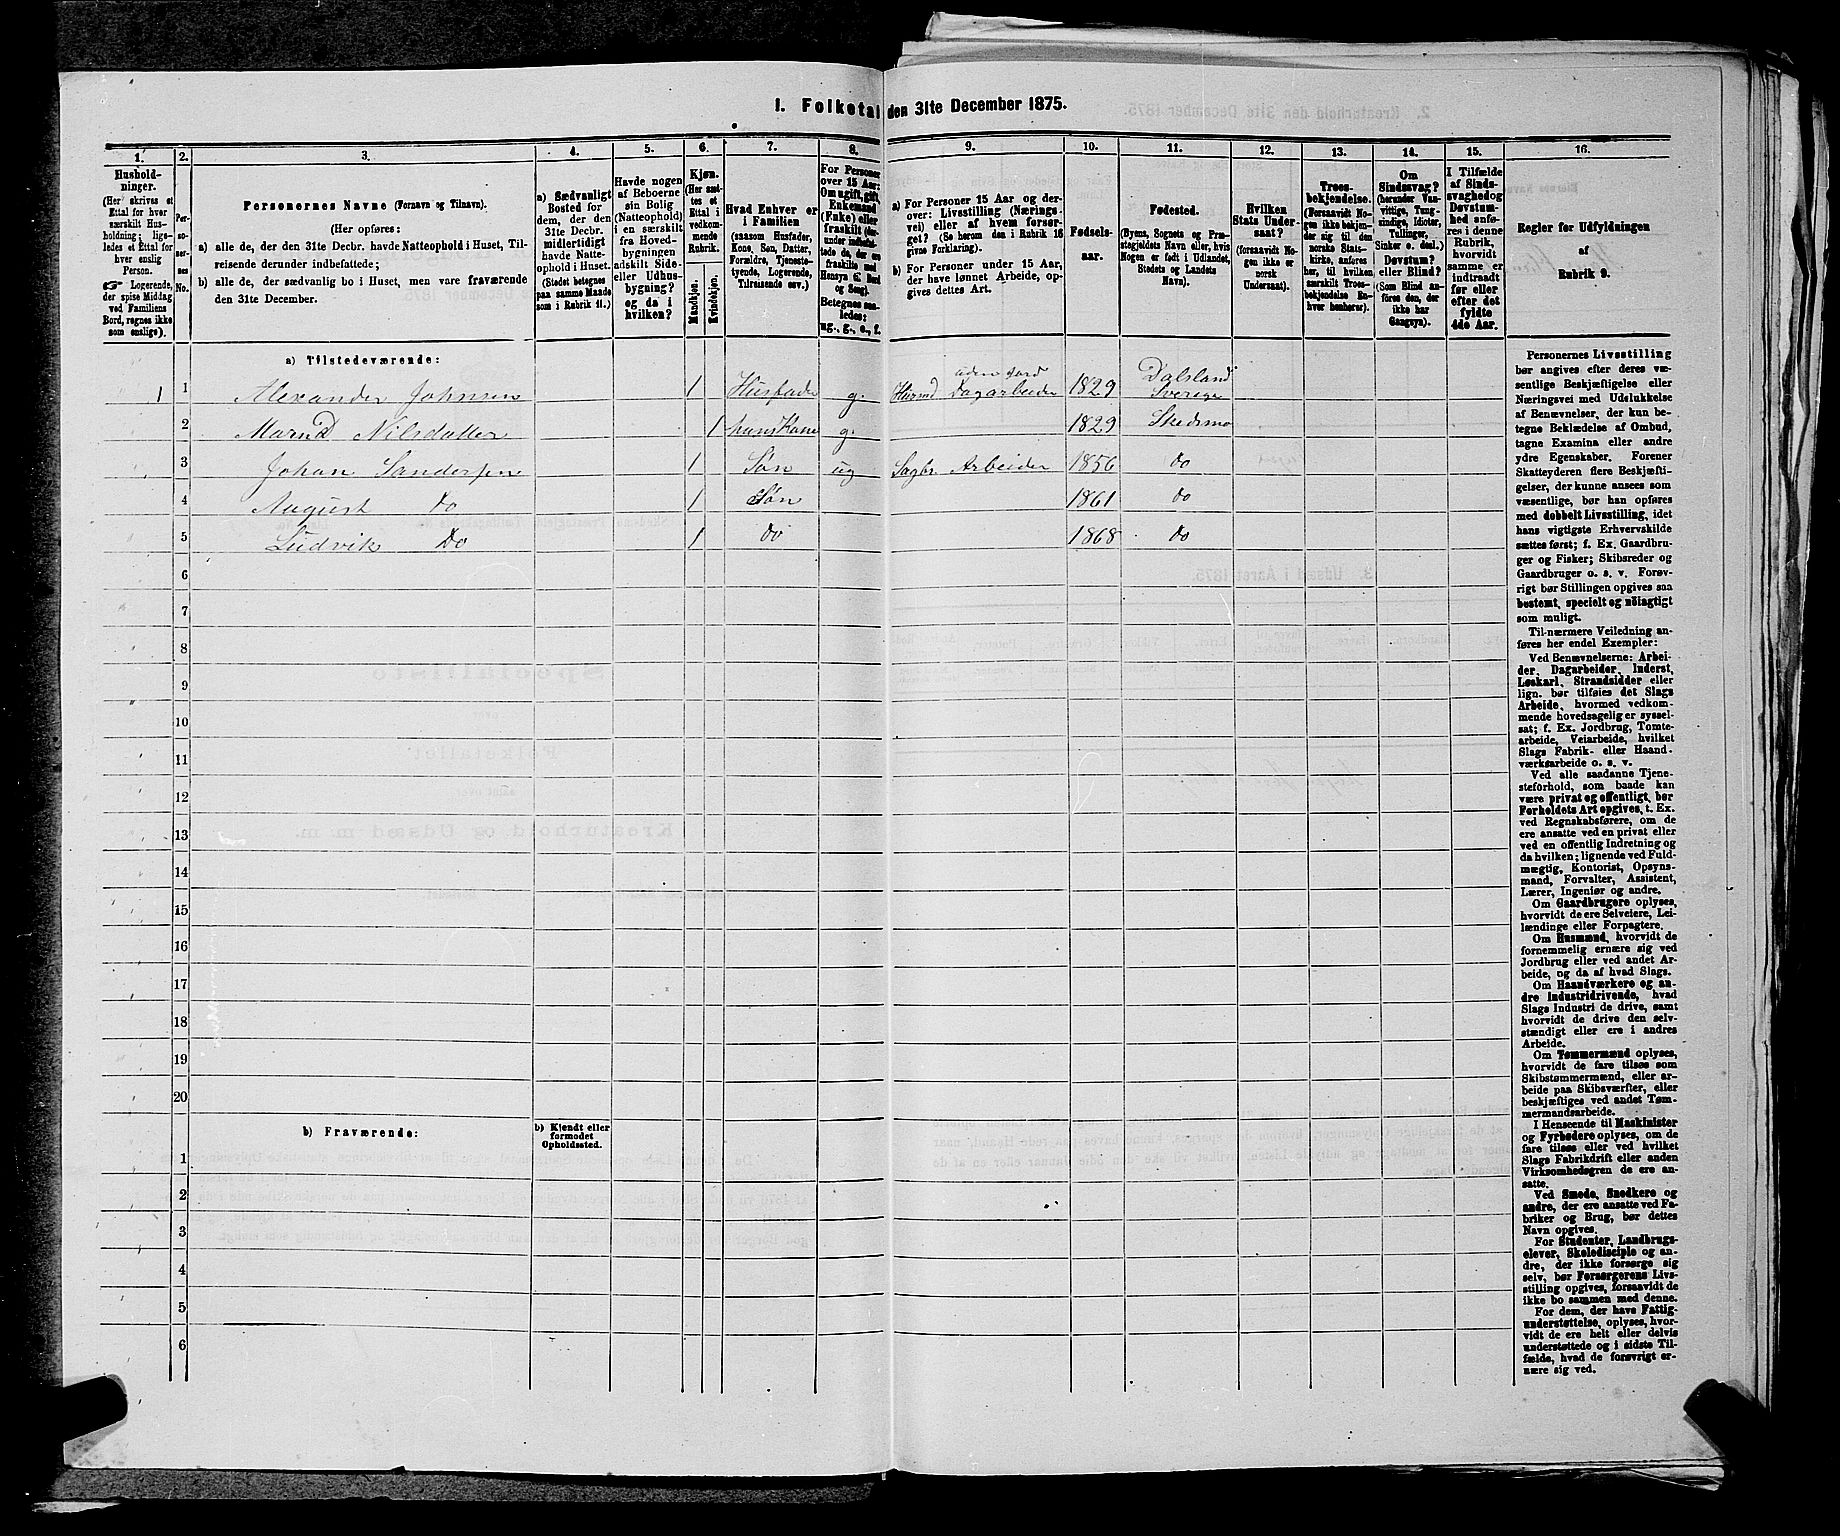 I. Folketal den 31te December 1875.
1. 2. 3. 4. 5. 6. 7. 8. 9. 10. 11. 12. 13. 14. 15. 16.
Hushold-
ninger.
(Her skrives et
Ettal for hver
særskilt Hus-
holdning; lige-
ledes et Ettal for
hver enslig
Person.
☞ Logerende,
der spise Middag
ved Familiens
Bord, regnes ikke
som enslige).
Per-
so-
nernes
No.
Personernes Navne (Fornavn og Tilnavn).
(Her opføres:
a) alle de, der den 31te Decbr. havde Natteophold i Huset, Til-
reisende derunder indbefattede;
b) alle de, der sædvanlig bo i Huset, men vare fraværende
den 31te December.
a) Sædvanligt
Bosted for
dem, der den
31te Decbr.
midlertidigt
havde Natte-
ophold i Huset.
(Stedet betegnes
paa samme Maade
som i Rubrik 11.)
Havde nogen
af Beboerne
sin Bolig
(Natteophold)
i en særskilt
fra Hoved-
bygningen
adskilt Side-
eller Udhus-
bygning?
og da i
hvilken?
Kjøn.
(Her sæt-
tes et
Ettal i
vedkom-
mende
Rubrik.
Mandkjøn.
Kvindekjøn.
Hvad Enhver er
i Familien
(saasom Husfader,
Kone, Søn, Datter,
Forældre, Tjeneste-
tyende, Logerende,
Tilreisende osv.)
For Personer
over 15 Aar:
Om ugift, gift,
Enkemand
(Enke) eller
fraskilt
Betegnes saa-
ledes:
ug., g., e., f.
a) For Personer 15 Aar og der-
over: Livsstilling (Nærings-
vei) eller af hvem forsør-
get? (Se herom den i Rubrik 16
givne Forklaring).
b) For Personer under 15 Aar,
der have lønnet Arbeide, op-
gives dettes Art.
Fødsels-
aar.
Fødested.
(Byens, Sognets og Præ-
stegjeldets Navn eller, hvis
Nogen er født i Udlandet,
Stedets og Landets
Navn).
Hvilken
Stats Under-
saat?
(forsaavidt No-
gen ikke er
norsk
Undersaat).
Troes-
bekjendelse.
(Forsaavidt No-
gen ikke bekjen-
der sig til den
norske Stats-
kirke, anføres
her, til hvilken
særskilt Troes-
bekjendelse En-
hver henhører).
Om
Sindssvag?
(herunder Van-
vittige, Tung-
sindige, Idioter,
Tullinger,
Sinker o. desl.)
Døvstum?
eller Blind?
(Som Blind an-
føres den, der
ikke har
Gangsyn).
I Tilfælde
af Sinds-
svaghed og
Døvstum-
hed anfø-
res i denne
Rubrik,
hvorvidt
samme er
indtraadt
før eller
efter det
fyldte
4de Aar.
Regler for Udfyldningen
af
Rubrik 9.
a) Tilstedeværende:
1 1 Alexander Johnsen 1 Husfade g. Husmd uden Jord Dagarbeider 1829 Dalsland Sverige
2 Nilsdatter 1 hans Kone g. 1829 Skedsmo
3 Johan Sandersen 1 Søn ug Sagbr Arbeider 1856 do
4 August Do 1 Søn 1861 do
5 Ludvik Do 1 do 1868 do
6
7
8
9
10
11
12
13
14
15
16
17
18
19
20
b) Fraværende:
b) Kjendt eller
formodet
Opholdssted.
1
2
3
4
5
6
Personernes Livsstilling
bør angives efter deres væ-
sentlige Beskjæftigelse eller
Næringsvei med Udelukkelse
af Benævnelser, der kun be-
tegne Beklædelse af Ombud,
tagne Examina eller andre
ydre Egenskaber. Forener
Skatteyderen flere Beskjæfti-
gelser, der kunne ansees som
væsentlige, bør han opføres
med dobbelt Livsstilling, idet
hans vigtigste Erhvervskilde
sættes først; f. Ex. Gaardbru-
ger og Fisker; Skibsreder og
Gaardbruger o. s. v. Forøv-
rigt bør Stillingen opgives saa
bestemt, specielt og nöiagtigt
som muligt.
Til nærmere Veiledning an-
føres her endel Exempler:
Ved Benævnelserne: Arbei-
der, Dagarbeider, Inderst,
Løskarl, Strandsidder eller
lign. bør tilføies det Slags
Arbeide, hvormed vedkom-
mende hovedsagelig er syssel-
sat; f. Ex. Jordbrug, Tomte-
arbeide, Veiarbeide, hvilket
Slags Fabrik- eller Haand-
værksarbeide o. s. v.
Ved alle saadanne Tjene-
steforhold, som baade kan
være privat og offentligt, bør
Forholdets Art opgives, t. Ex.
ved Regnskabsførere, om de
ere ansatte ved en privat eller
ved en offentlig Indretning og
da hvilken; lignende ved Fuld-
mægtig, Kontorist, Opsyns-
mand, Forvalter, Assistent,
Lærer, Ingeniør og andre.
Om Gaardbrugere oplyses,
hvorvidt de ere Selveiere, Lei-
lændinge eller Forpagtere.
Om Husmænd, hvorvidt de
fornemmelig ernære sig ved
Jordbrug eller ved andet Ar-
beide, og da af hvad Slags.
Om Haandværkere og an-
dre Industridrivende, hvad
Slags Industri de drive, samt
hvorvidt de drive den selv-
stændigt eller ere i andres
Arbeide.
Om Tømmermænd oplyses,
hvorvidt de fare tilsøs som
Skibstømmermænd, eller ar-
beide paa Skibsværfter, eller
beskjæftiges ved andet Tøm-
mermandsarbeide.
I Henseende til Maskinister
og Fyrbødere oplyses, om de
fare tilsøs eller ved hvilket
Slags Fabrikdrift eller anden
Virksomhedsgren de ere an-
satte.
Ved Smede, Snedkere og
andre, der ere ansatte ved Fa-
briker og Brug, bør dettes
Navn opgives.
For Studenter, Landbrugs-
elever, Skoledisciple og an-
dre, der ikke forsørge sig
selv, bør Forsørgerens Livs-
stilling opgives, forsaavidt de
ikke bo sammen med denne.
For dem, der have Fattig-
understøttelse, oplyses, hvor-
vidt de ere helt eller delvis
understøttede og i sidste Til-
fælde, hvad de forøvrigt er-
nære sig ved.